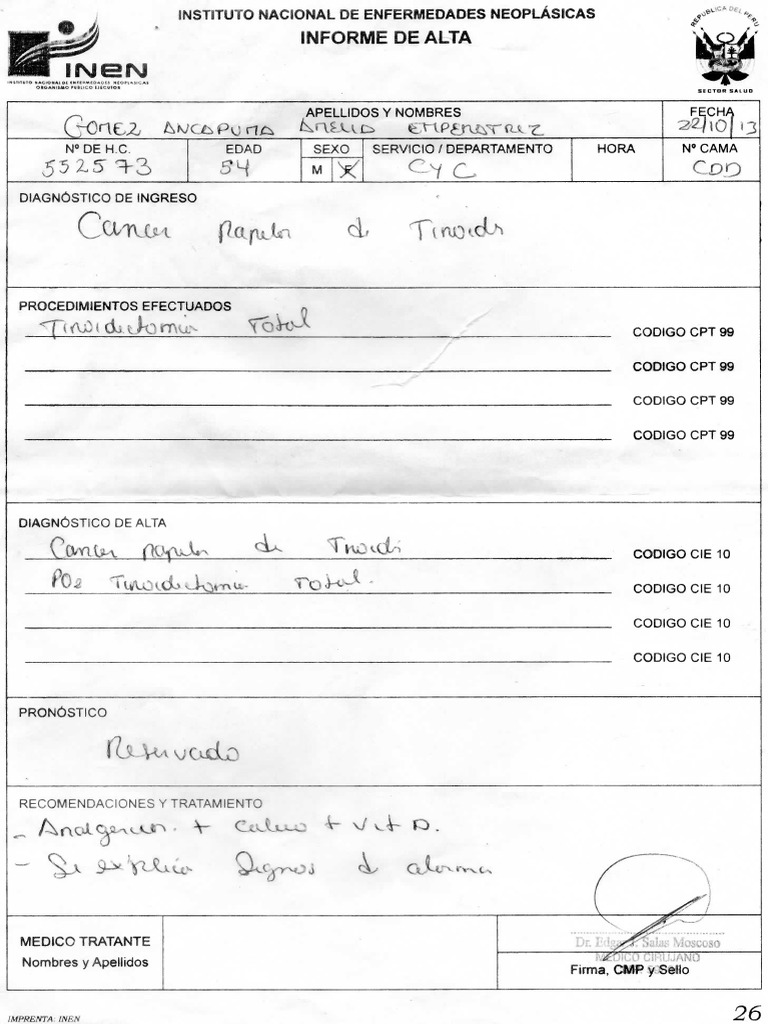 INSTITUTO NACIONAL DE ENFERMEDADES NEOPLÁSICAS
INFORME DE ALTA
INEN
INSTITUTO NACIONAL DE ENFERMEDADES NEOPLASICAS
ORGANISMO PUBLICO EJECUTOR
REPUBLICA DEL PERU
SECTOR SALUD
APELLIDOS Y NOMBRES
GOMEZ ANCAPUMA AMELIA EMPERATRIZ
FECHA
22/10/13
Nº DE H.C.
552573
EDAD
54
SEXO
M F
SERVICIO / DEPARTAMENTO
CYC
HORA
Nº CAMA
CDD
DIAGNÓSTICO DE INGRESO
Cancer Papilar de Tiroides
PROCEDIMIENTOS EFECTUADOS
Tiroidectomia Total
CODIGO CPT 99
CODIGO CPT 99
CODIGO CPT 99
CODIGO CPT 99
DIAGNÓSTICO DE ALTA
Cancer papilar de Tiroides
CODIGO CIE 10
PO2 Tiroidectomia Total.
CODIGO CIE 10
CODIGO CIE 10
CODIGO CIE 10
PRONÓSTICO
Reservado
RECOMENDACIONES Y TRATAMIENTO
- Analgesicos. + calcio + Vit D.
- Se explica signos de alarma
MEDICO TRATANTE
Nombres y Apellidos
Dr. Edgar J. Salas Moscoso
MEDICO CIRUJANO
Firma, CMP y Sello
IMPRENTA: INEN
26